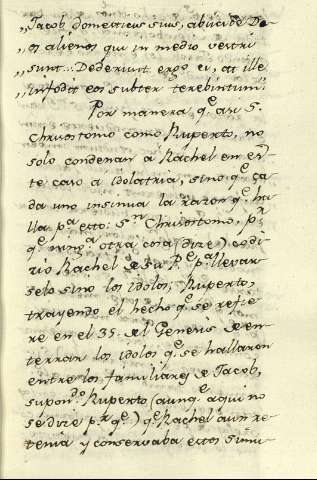 „Jacob domesticus suus, abiicite De-
„os alienos qui in medio vestri
„sunt... Dederunt ergo ei, at ille
„infodit eos subter terebintum."
Por manera q.e asi S.
Chrisostomo como Ruperto, no
solo condenan á Rachel en es-
te caso á idolatria, sino q.e ca-
da uno insinua la razon q.e ha-
lla p.a esto: S.n Chrisostomo, p.r
q.e ning.a otra cosa (dize) co
rio Rachel de su P.e p.a llevar-
selo sino los idolos; Ruperto,
trayendo el hecho q.e se refie-
re en el 35. del Genesis de en-
terrar los idolos q.e se hallaron
entre los familiares de Jacob,
supon.do Ruperto (aunq.e aqui no
se dize p.r q.e) q.e Rachel aun re-
tenia y conservaba estos simu-